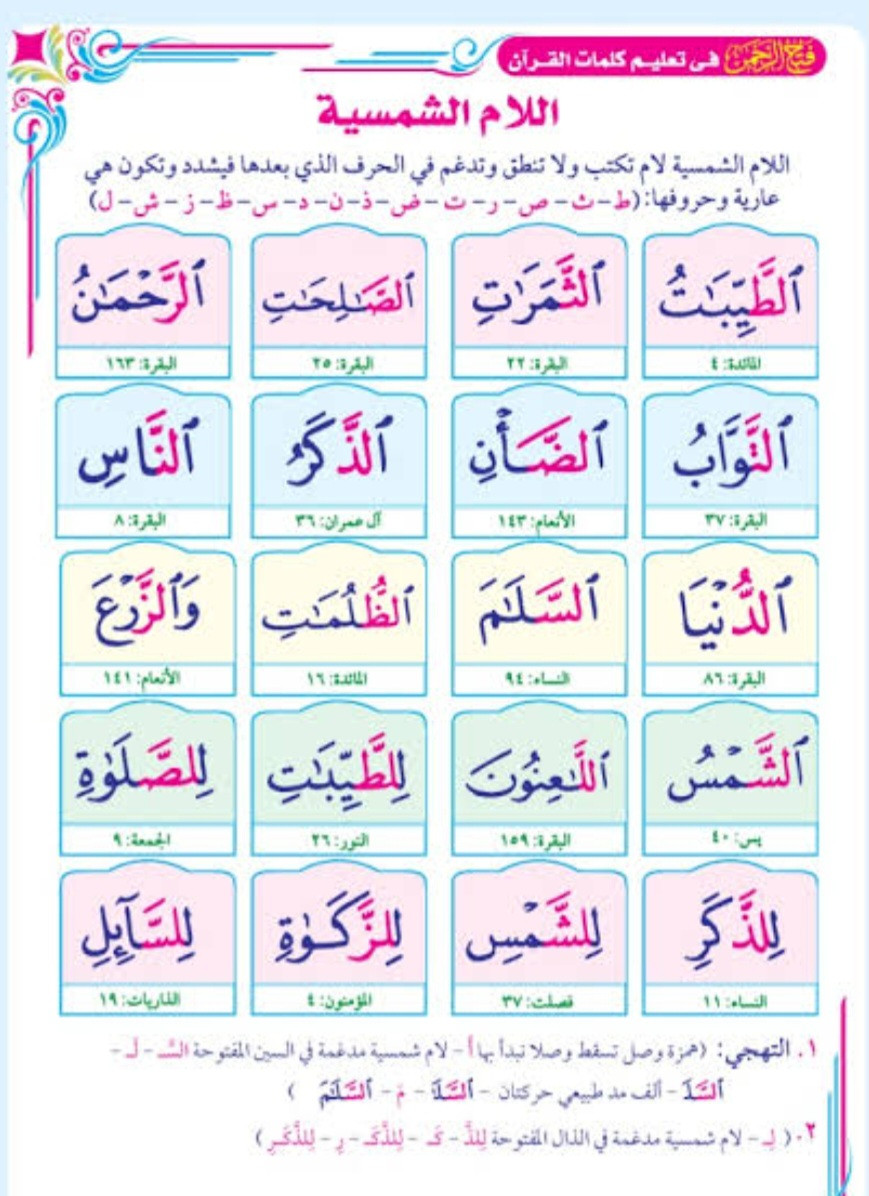 فتح الرحمن في تعليم كلمات القرآن
اللام الشمسية
اللام الشمسية لام تكتب ولا تنطق وتدغم في الحرف الذي بعدها فيشدد وتكون هي
عارية وحروفها: (ط - ث - ص - ر - ت - ض - ذ - ن - د - س - ظ - ز - ش - ل)
ٱلطَّيِّبَٰتُ ٱلثَّمَرَٰتِ ٱلصَّٰلِحَٰتِ ٱلرَّحْمَٰنُ
المائدة: ٤ البقرة: ٢٢ البقرة: ٢٥ البقرة: ١٦٣
ٱلتَّوَّابُ ٱلضَّأْنِ ٱلذَّكَرُ ٱلنَّاسِ
البقرة: ٣٧ الأنعام: ١٤٣ آل عمران: ٣٦ البقرة: ٨
ٱلدُّنْيَا ٱلسَّلَٰمَ ٱلظُّلُمَٰتِ وَٱلزَّرْعَ
البقرة: ٨٦ النساء: ٩٤ المائدة: ١٦ الأنعام: ١٤١
ٱلشَّمْسُ ٱللَّٰعِنُونَ لِلطَّيِّبَٰتِ لِلصَّلَوٰةِ
يس: ٤٠ البقرة: ١٥٩ النور: ٢٦ الجمعة: ٩
لِلذَّكَرِ لِلشَّمْسِ لِلزَّكَوٰةِ لِلسَّآئِلِ
النساء: ١١ فصلت: ٣٧ المؤمنون: ٤ الذاريات: ١٩
١. التهجي: (همزة وصل تسقط وصلا تبدأ بها أَ - لام شمسية مدغمة في السين المفتوحة السَّـ - لَـ -
ٱلسَّلَـ - ألف مد طبيعي حركتان - ٱلسَّلَٰـ - مَ - ٱلسَّلَٰمَ )
٢. ( لِـ - لام شمسية مدغمة في الذال المفتوحة لِلذَّ - كَـ - لِلذَّكَـ - رِ - لِلذَّكَرِ )